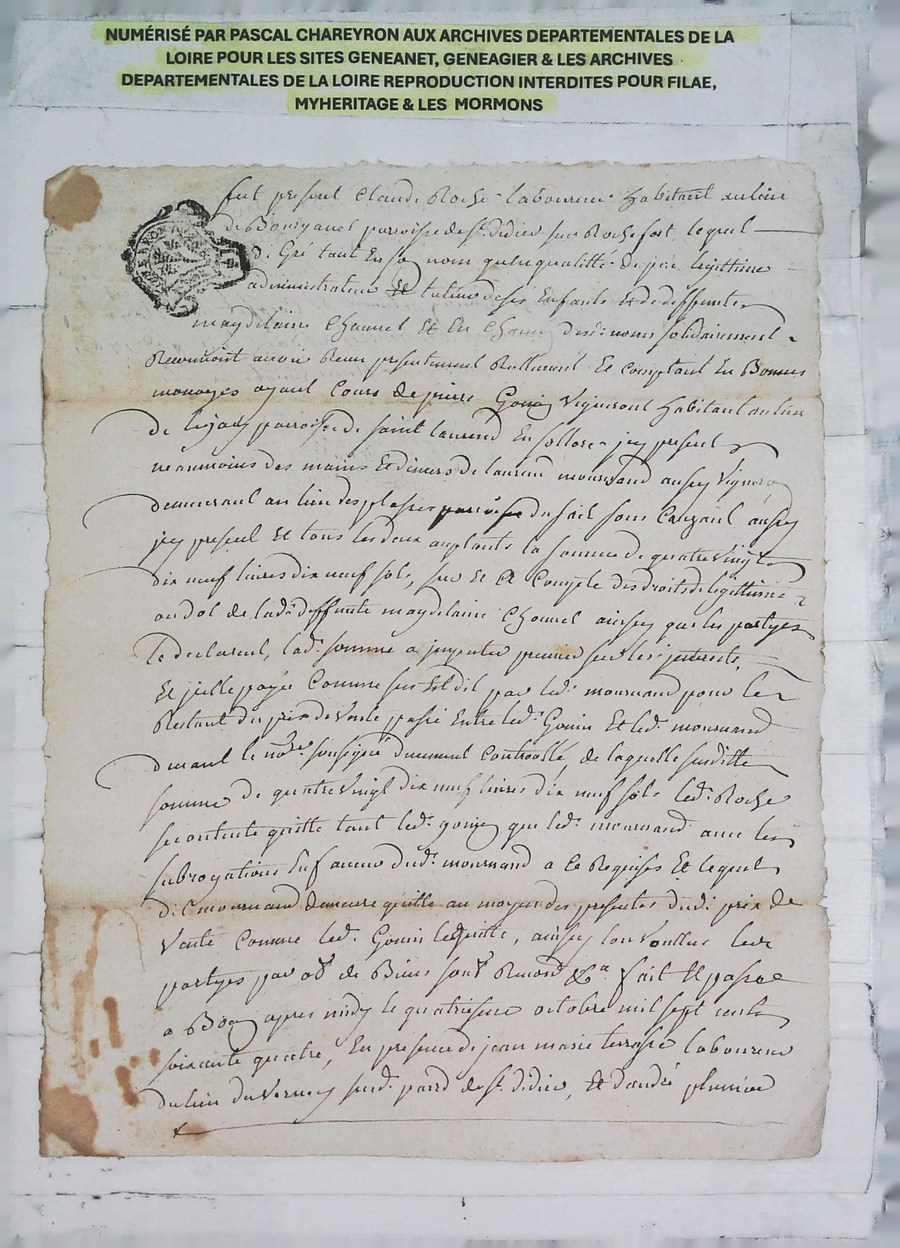 NUMÉRISÉ PAR PASCAL CHAREYRON AUX ARCHIVES DEPARTEMENTALES DE LA
LOIRE POUR LES SITES GENEANET, GENEAGIER & LES ARCHIVES
DEPARTEMENTALES DE LA LOIRE REPRODUCTION INTERDITES POUR FILAE,
MYHERITAGE & LES MORMONS
fut present Claude Roche laboureur habitant au lieu
de paroisse de st. didier sur Rochefort lequel
de Gré tant En son nom qu'en qualitté de pere legittime
administrateur Et tuteur de ses Enfants & de deffunte
magdelaine Chauvel Et En chacun desd. noms solidairement
avoir Receu presentement Reellement Et comptant En Bonnes
monoyes ayant Cours de pierre Gonin Vigneront habitant au lieu
de parroisse de saint laurend En sollore jcy present
neanmoins des mains Et deniers de laurend mournand aussy Vigneron
demeurant au lieu des parroisse dud sail sous Couzant aussy
jcy present Et tous les deux acceptants la somme de quatre vingt
dix neuf livres dix neuf sols, sur Et a Compte des droits de legittime
ou dot de lad. deffunte magdelaine Chauvel ainsy que les partyes
le declarent, lad. somme a jmputer premier sur les jnterests,
Et jcelle payée Comme sus Est dit par led. mournand pour le
Restant du prix de vente passé Entre led. Gonin Et led. mournand
devant le nore. soussigné duement Controollé, de laquelle susditte
somme de quatre vingt dix neuf livres dix neuf sols led. Roche
se contente quitte tant led. gonin que led. mournand avec les
subrogations En faveur dud. mournand a ce Requises Et lequel
dit mournand demeure quitte au moyen des presentes dud. prix de
Vente Comme led. Gonin le quitte, ainsy l'on voullue les
partyes par ob. de Biens Renond. &a. fait Et passé
a Boen apres midy le quatriesme octobre mil sept cents
soixante quatre, En presence de jean marie terrasse laboureur
du lieu du Vernay susd. parrd. de st. didier, Et d'andré plumier